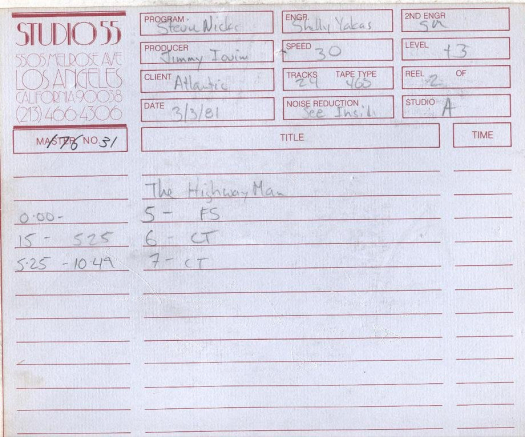 STUDIO 55
5505 MELROSE AVE
LOS ANGELES
CALIFORNIA 90038
(213) 466-4306
PROGRAM Stevie Nicks
ENGR. Shelly Yakus
2ND ENGR
PRODUCER Jimmy Iovine
SPEED 30
LEVEL +3
CLIENT Atlantic
TRACKS 24 TAPE TYPE 460
REEL 2 OF
DATE 3/3/81
NOISE REDUCTION See Inside
STUDIO A
MASTER NO 31
TITLE
TIME
The Highway Man
0:00- 5 - FS
15 - 525 6 - CT
5:25 - 10:49 7 - CT